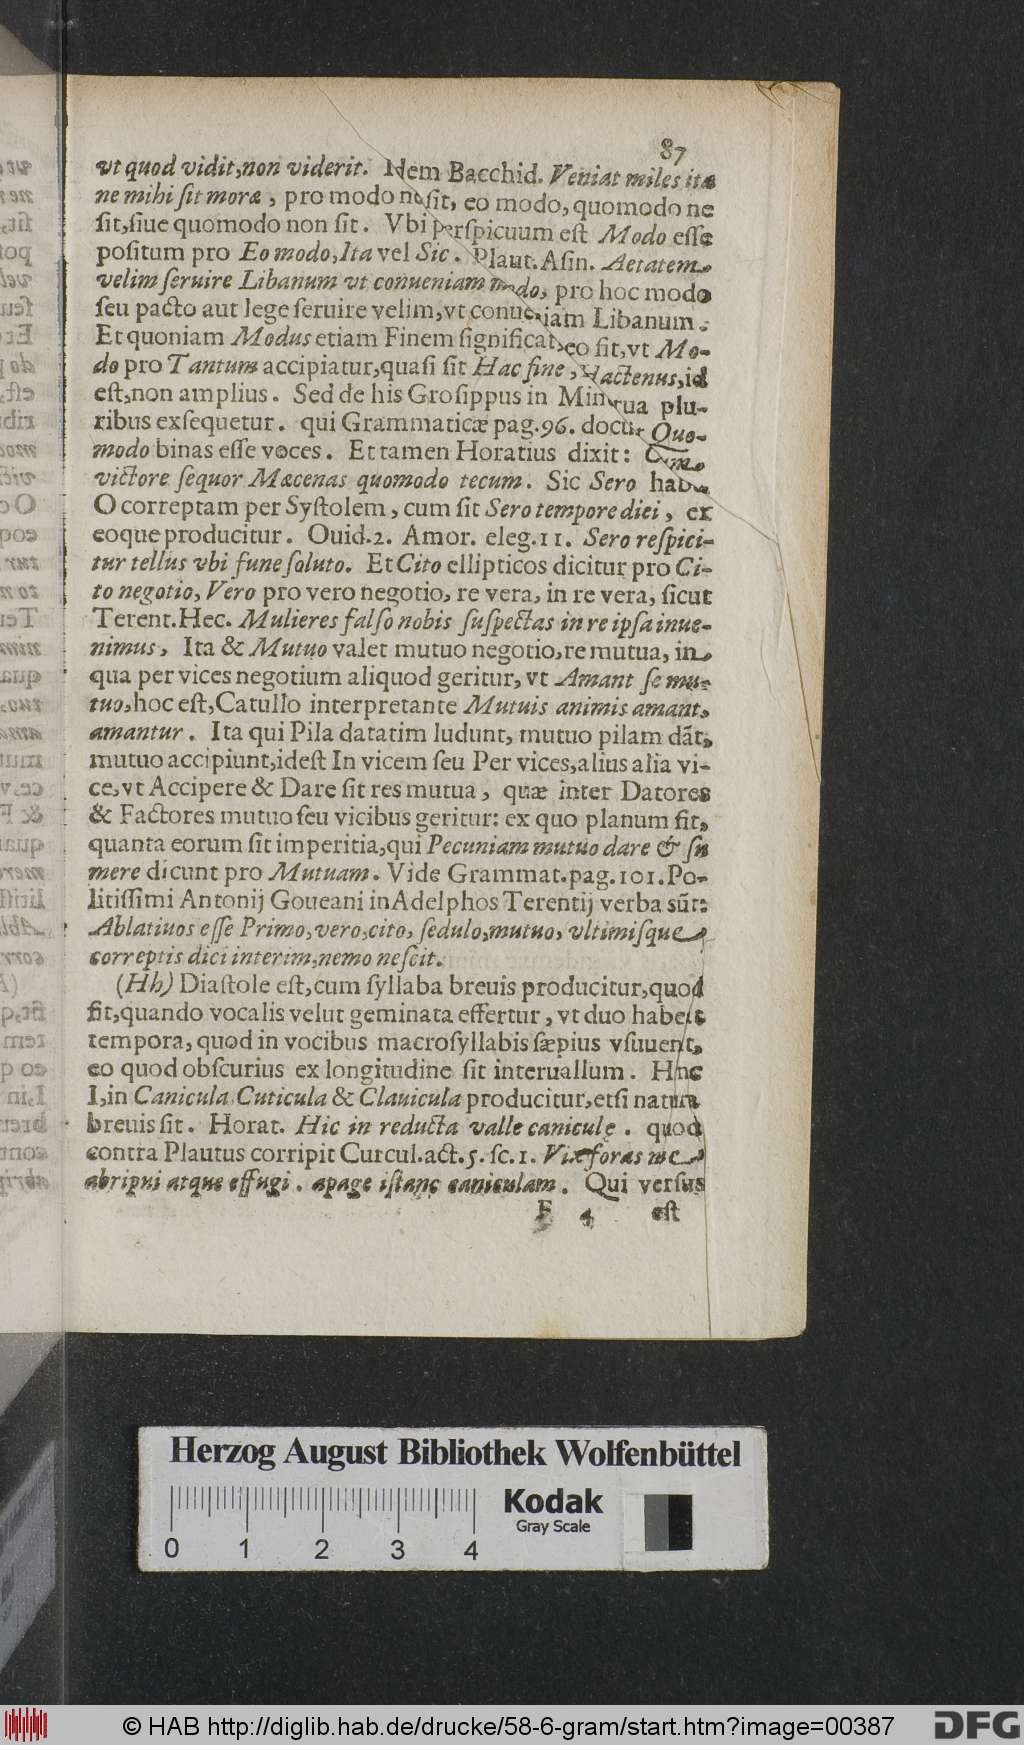 87
vt quod vidit, non viderit. Nem Bacchid. Veniat miles ita
ne mihi ſit moræ, pro modo ne ſit, eo modo, quomodo ne
ſit, ſiue quomodo non ſit. Vbi perſpicuum eſt Modo eſſe
poſitum pro Eo modo, Ita vel Sic. Plaut. Aſin. Aetatem
velim ſeruire Libanum vt conueniam modo, pro hoc modo
ſeu pacto aut lege ſeruire velim, vt conueniam Libanum.
Et quoniam Modus etiam Finem ſignificat, eo fit, vt Mo-
do pro Tantum accipiatur, quaſi ſit Hac fine, Hactenus, id
eſt, non amplius. Sed de his Groſippus in Minerua plu-
ribus exſequetur. qui Grammaticæ pag. 96. docuit Quo-
modo binas eſſe voces. Et tamen Horatius dixit: Cum
victore ſequor Mæcenas quomodo tecum. Sic Sero habet
O correptam per Syſtolem, cum ſit Sero tempore diei, ex
eoque producitur. Ouid. 2. Amor. eleg. 11. Sero reſpici-
tur tellus vbi fune ſoluto. Et Cito ellipticos dicitur pro Ci-
to negotio, Vero pro vero negotio, re vera, in re vera, ſicut
Terent. Hec. Mulieres falſo nobis ſuſpectas in re ipſa inue-
nimus, Ita & Mutuo valet mutuo negotio, re mutua, in
qua per vices negotium aliquod geritur, vt Amant ſe mu-
tuo, hoc eſt, Catullo interpretante Mutuis animis amant,
amantur. Ita qui Pila datatim ludunt, mutuo pilam dãt,
mutuo accipiunt, ideſt In vicem ſeu Per vices, alius alia vi-
ce, vt Accipere & Dare ſit res mutua, quæ inter Datores
& Factores mutuo ſeu vicibus geritur: ex quo planum fit,
quanta eorum ſit imperitia, qui Pecuniam mutuo dare & ſu
mere dicunt pro Mutuam. Vide Grammat. pag. 101. Po-
litiſſimi Antonij Goueani in Adelphos Terentij verba sũt:
Ablatiuos eſſe Primo, vero, cito, ſedulo, mutuo, vltimiſque
correptis dici interim, nemo neſcit.
(Hh) Diaſtole eſt, cum ſyllaba breuis producitur, quod
fit, quando vocalis velut geminata effertur, vt duo habeat
tempora, quod in vocibus macroſyllabis ſæpius vſuuent,
eo quod obſcurius ex longitudine ſit interuallum. Hinc
I, in Canicula Cuticula & Clauicula producitur, etſi natura
breuis ſit. Horat. Hic in reducta valle caniculę. quod
contra Plautus corripit Curcul. act. 5. ſc. 1. Vix foras me
abripui atque effugi. apage iſtanc caniculam. Qui verſus
F 4 eſt
Herzog August Bibliothek Wolfenbüttel
Kodak
Gray Scale
0 1 2 3 4
© HAB http://diglib.hab.de/drucke/58-6-gram/start.htm?image=00387
DFG